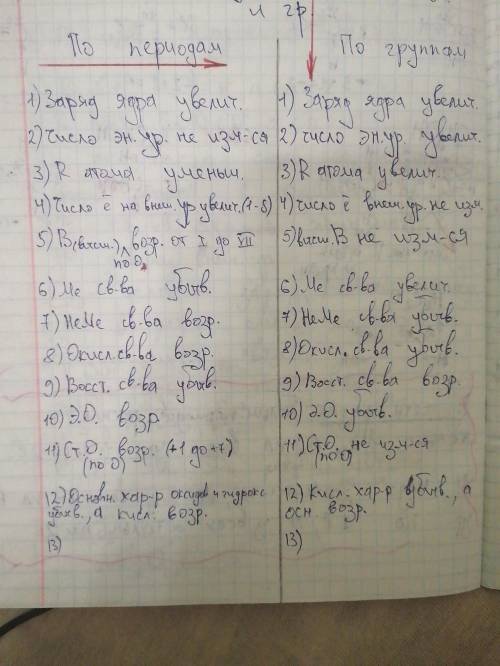 и гр
По периодам
1) Заряд ядра увелич.
2) Число эн. ур. не изм-ся
3) R атома уменьш.
4) Число ē на внеш. ур увелич. (1-8)
5) В(высш.) возр. от I до VII
по О
6) Ме св-ва убыв.
7) НеМе св-ва возр.
8) Окисл. св-ва возр.
9) Восст. св-ва убыв.
10) Э.О. возр
11) Ст.О. возр. (+1 до +7)
(по О)
12) Основн. хар-р оксидов и гидрокс
убыв., а кисл. возр.
13)
По группам
1) Заряд ядра увелич.
2) число эн. ур. увелич.
3) R атома увелич.
4) число ē внеш. ур. не изм.
5) высш. В не изм-ся
6) Ме св-ва увелич.
7) НеМе св-ва убыв.
8) Окисл. св-ва убыв.
9) Восст. св-ва возр.
10) Э.О. убыв.
11) Ст.О. не изм-ся
(по О)
12) Кисл. хар-р убыв., а
осн. возр.
13)